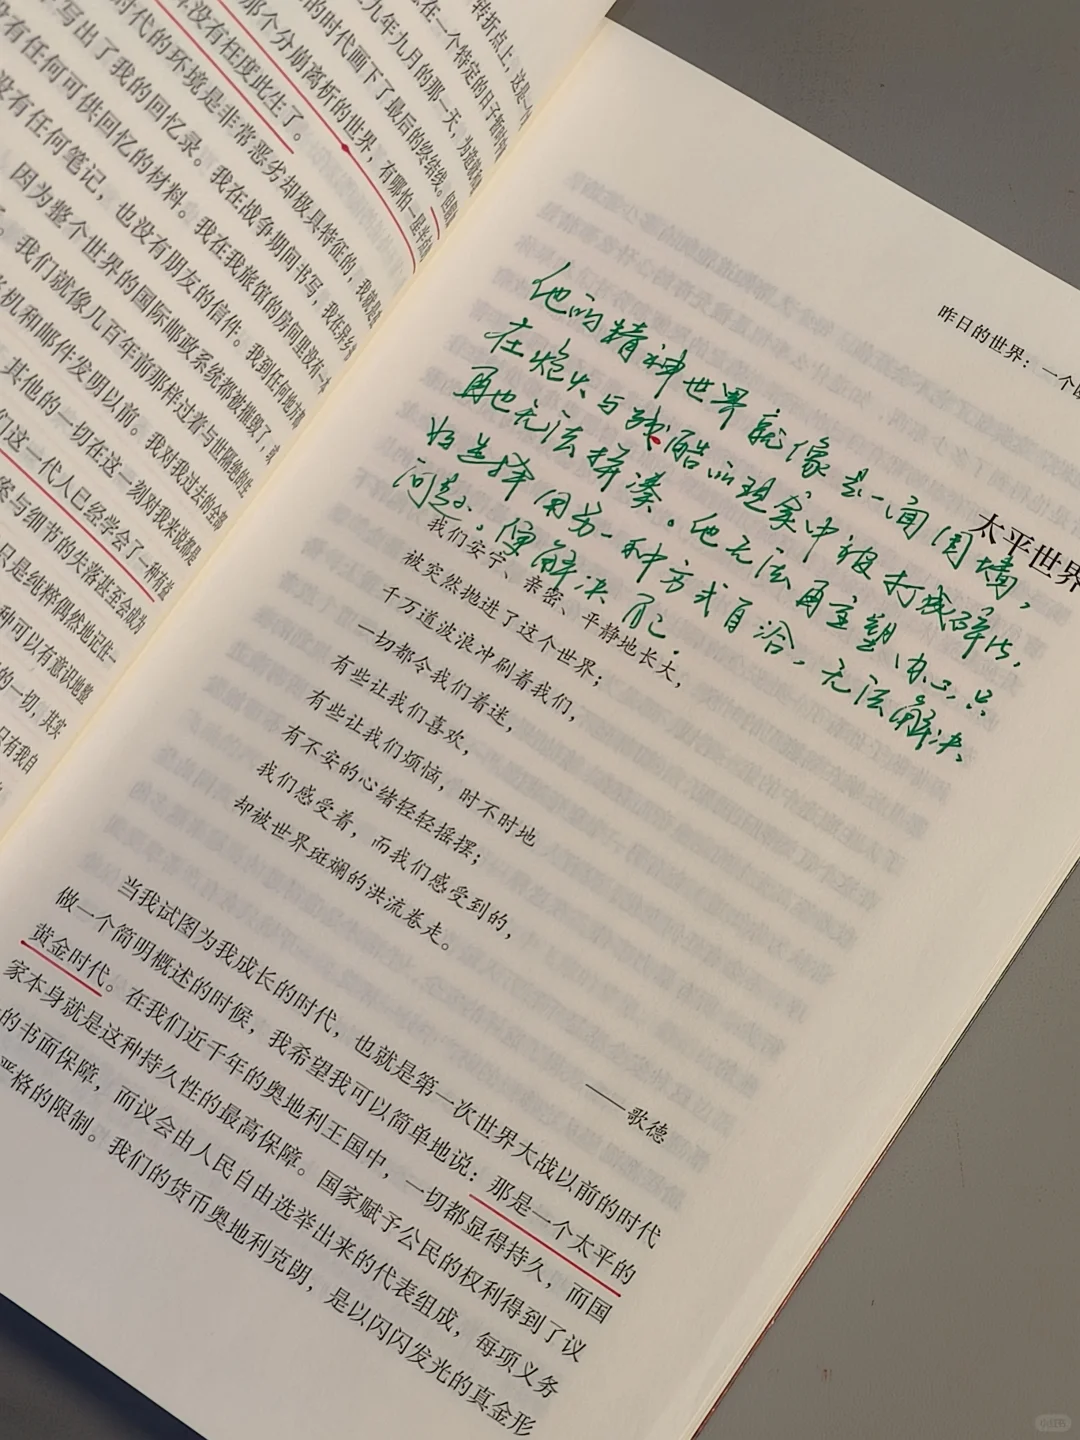 转折点上，这是一个
在一个特定的日子
九年九月的那一天，为造就和
的时代画下了最后的终结线。但
那个分崩离析的世界，有哪怕一星半点
没有枉度此生了。
时代的环境是非常恶劣却极具特征的，我就是
写出了我的回忆录。我在战争期间书写，我在异乡
没有任何可供回忆的材料。我在我旅馆的房间里没有一本
没有任何笔记，也没有朋友的信件。我到任何地方都
因为整个世界的国际邮政系统都被摧毁了，或
。我们就像几百年前那样过着与世隔绝的生
机和邮件发明以前。我对我过去的全部
其他的一切在这一刻对我来说都是
们这一代人已经学会了一种有效
案与细节的失落甚至会成为
只是纯粹偶然地记住一
种可以有意识地整
的一切，其实
只有我自
昨日的世界：一个
太平世界
他的精神世界就像是一面围墙，
在炮火与残酷的现实中被打成碎片，
再也无法拼凑。他无法再重塑内心，只
好选择用另一种方式自洽，无法解决
问题。便解决自己。
我们安宁、亲密、平静地长大，
被突然抛进了这个世界；
千万道波浪冲刷着我们，
一切都令我们着迷，
有些让我们喜欢，
有些让我们烦恼，时不时地
有不安的心绪轻轻摇摆；
我们感受着，而我们感受到的，
却被世界斑斓的洪流卷走。
——歌德
当我试图为我成长的时代，也就是第一次世界大战以前的时代
做一个简明概述的时候，我希望我可以简单地说：那是一个太平的
黄金时代。在我们近千年的奥地利王国中，一切都显得持久，而国
家本身就是这种持久性的最高保障。国家赋予公民的权利得到了议
的书面保障，而议会由人民自由选举出来的代表组成，每项义务
严格的限制。我们的货币奥地利克朗，是以闪闪发光的真金形